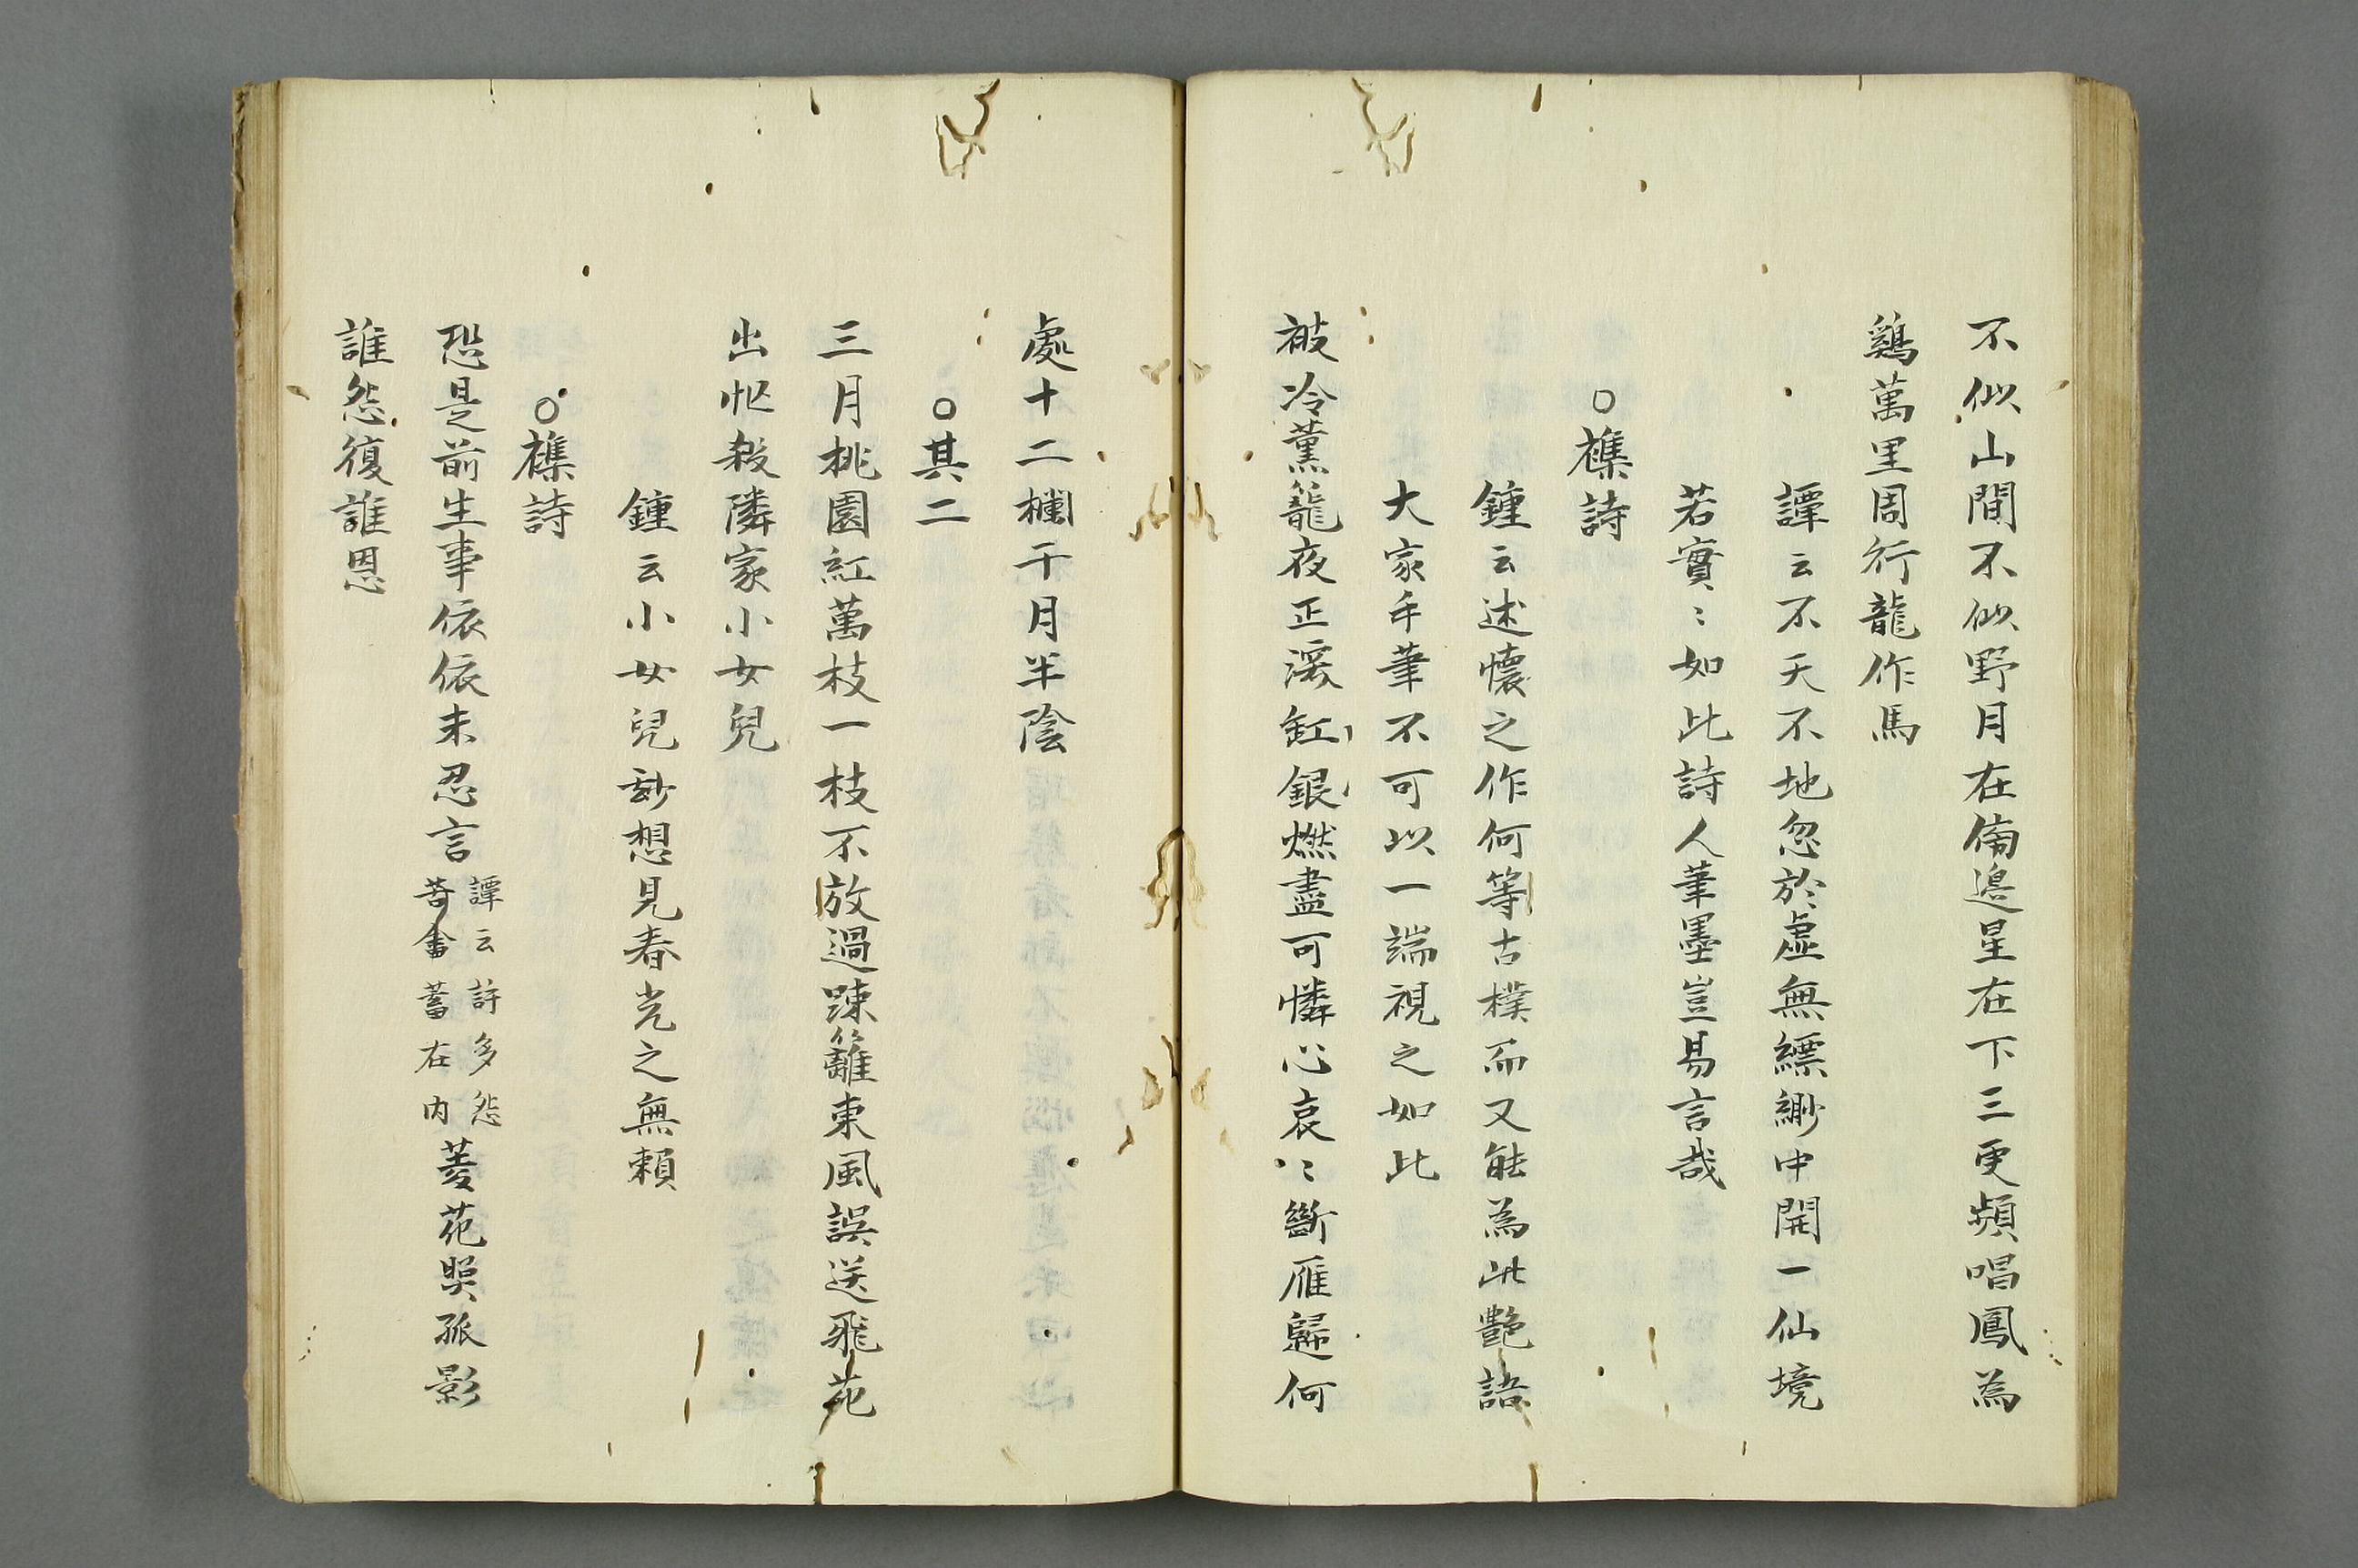 不似山間不似野月在僃邉星在下三更頻唱鳳為
鷄萬里周行龍作馬
譚云不天不地忽於虛無縹緲中開一仙境
若實〻如此詩人筆墨豈易言哉
○襍詩
鍾云述懷之作何等古樸而又能為此艶語
大家手筆不可以一端視之如此
被冷薫籠夜正深缸銀燃盡可憐心哀〻斷雁歸何
處十二欄干月半陰
○其二
三月桃園紅萬枝一枝不放過踈籬東風誤送飛花
出忙殺隣家小女兒
鍾云小女兒玅想見春光之無頼
○襍詩
恐是前生事依依未忍言
譚云許多怨
苦畬蓄在内
菱花照孤影
誰怨復誰恩